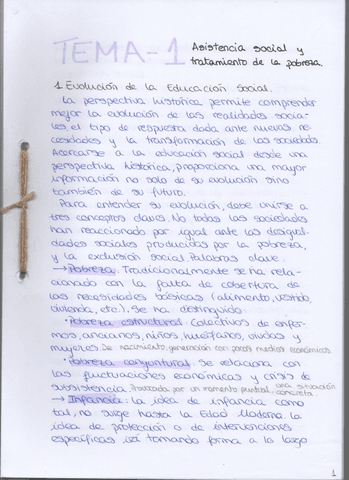 TEMA-1 Asistencia social y
tratamiento de la pobreza.
1 Evolución de la Educación Social.
La perspectiva histórica permite comprender
mejor la evolución de las realidades socia-
les, el tipo de respuesta dada ante nuevas ne-
cesidades y la transformación de las sociedades.
Acercarse a la educación social desde una
perspectiva histórica, proporciona una mayor
información no solo de su evolución sino
también de su futuro.
Para entender su evolución, debe unirse a
tres conceptos claves. No todas las sociedades
han reaccionado por igual ante las desigual-
dades sociales producidas por la pobreza,
y la exclusión social. Palabras clave.
→ Pobreza. Tradicionalmente se ha rela-
cionado con la falta de cobertura de
las necesidades básicas (alimento, vestido,
vivienda, etc.). Se ha distinguido.
• Pobreza estructural: Colectivos de enfer-
mos, ancianos, niños, huérfanos, viudas y
mujeres. De nacimiento, generación con pocos medios económicos
• Pobreza coyuntural: Se relaciona con
las fluctuaciones económicas y crisis de
subsistencia. Provocada por un momento puntual, una situación
concreta.
→ Infancia: La idea de infancia como
tal, no surge hasta la Edad Moderna. La
idea de protección o de intervenciones
específicas irá tomando forma a lo largo
1